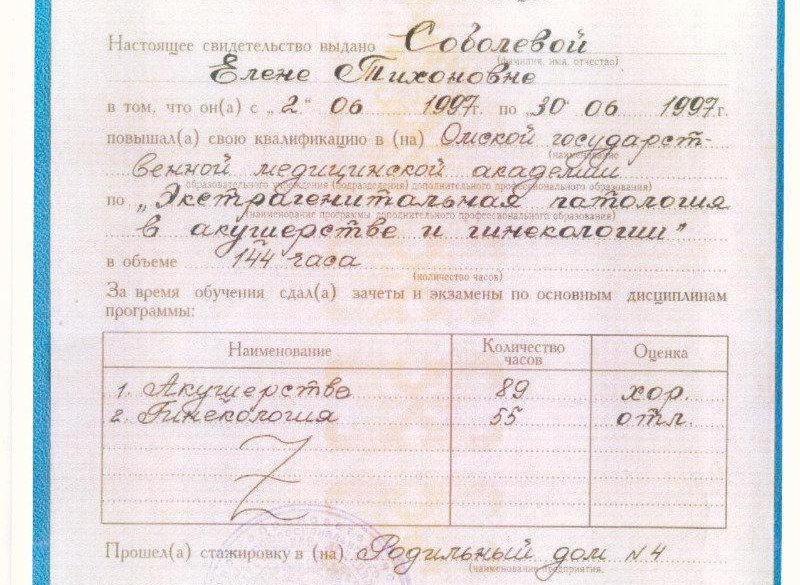 Настоящее свидетельство выдано Соболевой
(фамилия, имя, отчество)
Елене Тихоновне
в том, что он(а) с „2“ 06 1997г. по „30“ 06 1997г.
повышал(а) свою квалификацию в (на) Омской государст-
(наименование
венной медицинской академии
образовательного учреждения (подразделения) дополнительного профессионального образования)
по „Экстрагенитальная патология
(наименование программы дополнительного профессионального образования)
в акушерстве и гинекологии”
в объеме 144 часа
(количество часов)
За время обучения сдал(а) зачеты и экзамены по основным дисциплинам
программы:
Наименование Количество часов Оценка
1. Акушерство 89 хор.
2. Гинекология 55 отл.
Z
Прошел(а) стажировку в (на) Родильный дом N4
(наименование предприятия,